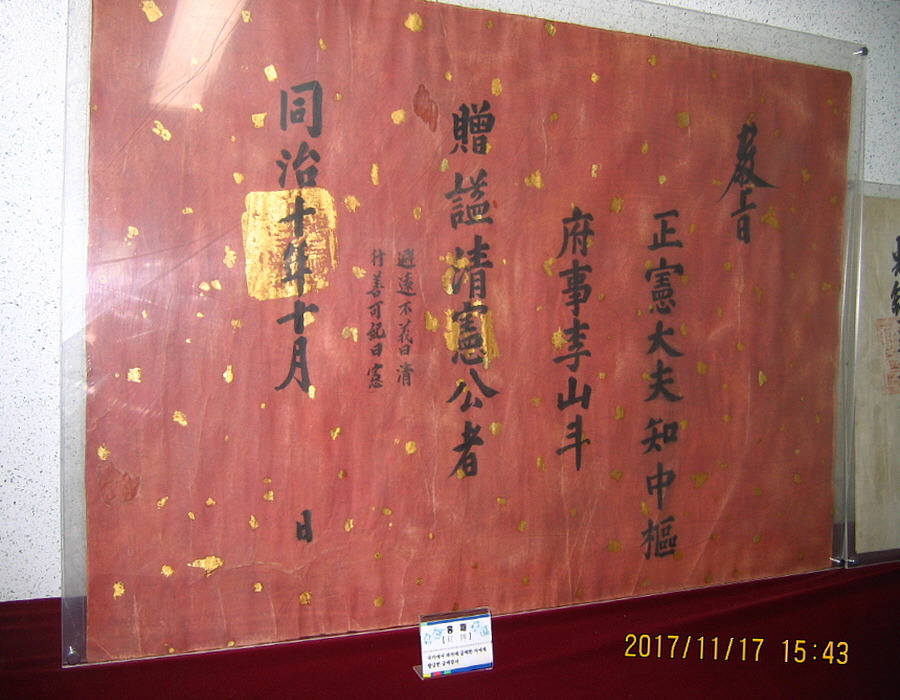 教旨
正憲大夫知中樞
府事李山斗
贈諡清憲公者
避遠不義曰清
行善可記曰憲
同治十年十月 日
홍 패
2017/11/17 15:43